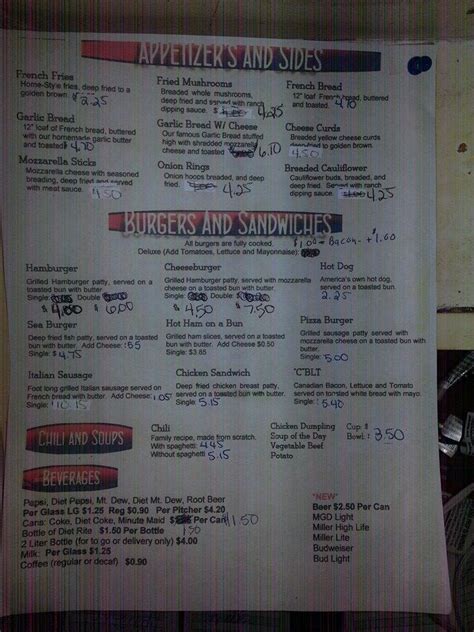 APPETIZER'S AND SIDES
French Fries
Home-Style fries, deep fried to a
golden brown. $ 2.25
Fried Mushrooms
Breaded whole mushrooms,
deep fried and served with ranch
dipping sauce. $ 4.25
French Bread
12" loaf of French bread, buttered
and toasted
Garlic Bread
12" loaf of French bread, buttered
with our homemade garlic butter
and toasted 4.70
Garlic Bread W/ Cheese
Our famous Garlic Bread stuffed
high with shredded mozzarella
cheese and toasted 6.10
Cheese Curds
Breaded yellow cheese curds
deep fried to golden brown.
4.50
Mozzarella Sticks
Mozzarella cheese with seasoned
breading, deep fried and served
with meat sauce. 4.50
Onion Rings
Onion hoops breaded, and deep
fried. 4.25
Breaded Cauliflower
Cauliflower buds, breaded, and
deep fried. Served with ranch
dipping sauce. 4.25
BURGERS AND SANDWICHES
All burgers are fully cooked. $1.00 Bacon +1.00
Deluxe (Add Tomatoes, Lettuce and Mayonnaise):
Hamburger
Grilled Hamburger patty, served on a
toasted bun with butter.
Single: Double:
$ $ 6.00
Cheeseburger
Grilled Hamburger patty, served with mozzarella
cheese on a toasted bun with butter.
Single: Double:
$ 4.50 $ 7.50
Hot Dog
America's own hot dog,
served on a toasted bun.
Single: 2.25
Sea Burger
Deep fried fish patty, served on a toasted
bun with butter. Add Cheese: .55
Single: $ 4.75
Hot Ham on a Bun
Grilled ham slices, served on a toasted
bun with butter. Add Cheese $0.50
Single: $3.85
Pizza Burger
Grilled sausage patty, served with
mozzarella cheese on a toasted bun
with butter.
Single: 5.00
Italian Sausage
Foot long grilled Italian sausage served on
French bread with butter. Add Cheese: 1.05
Single: $10.15
Chicken Sandwich
Deep fried chicken breast patty,
served on a toasted bun with butter.
Single: 5.15
"C"BLT
Canadian Bacon, Lettuce and Tomato
served on toasted white bread with mayo.
Single: 5.40
CHILI AND SOUPS
Chili
Family recipe, made from scratch.
With spaghetti 4.45
Without spaghetti 5.15
Chicken Dumpling
Soup of the Day
Vegetable Beef
Potato
Cup: $
Bowl: 3.50
BEVERAGES
Papsi, Diet Papsi, Mt. Dew, Diet Mt. Dew, Root Beer
Per Glass LG $1.25 Reg $0.90 Per Pitcher $4.20
Cans: Coke, Diet Coke, Minute Maid Per Can $1.50
Bottle of Diet Rite $1.50 Per Bottle 1.50
2 Liter Bottle (for to go or delivery only) $4.00
Milk: Per Glass $1.25
Coffee (regular or decaf) $0.90
"NEW"
Beer $2.50 Per Can
MGD Light
Miller High Life
Miller Lite
Budweiser
Bud Light